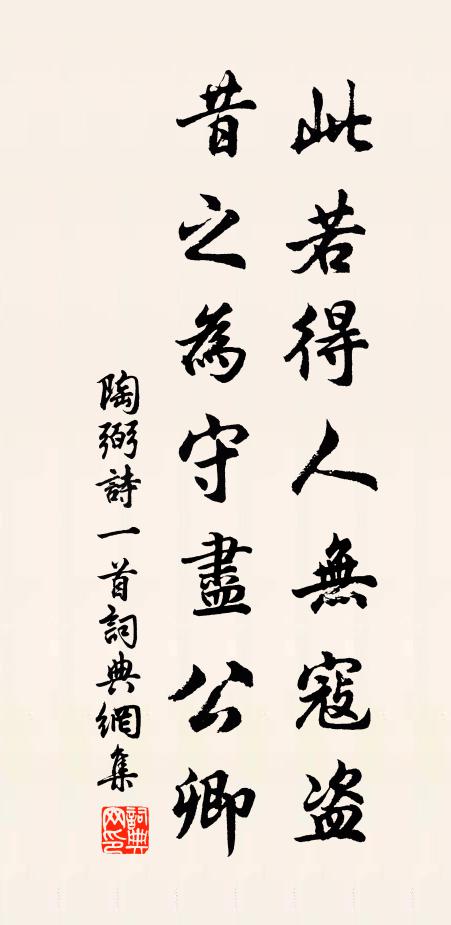 此若得人無寇盗
昔之為守盡公卿
陶弼詩一首詞典網集
詞典網印